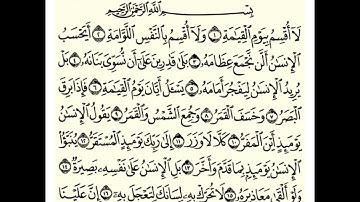 بِسْمِ ٱللَّهِ ٱلرَّحْمَٰنِ ٱلرَّحِيمِ
لَآ أُقْسِمُ بِيَوْمِ ٱلْقِيَٰمَةِ ١ وَلَآ أُقْسِمُ بِٱلنَّفْسِ ٱللَّوَّامَةِ ٢ أَيَحْسَبُ
ٱلْإِنسَٰنُ أَلَّن نَّجْمَعَ عِظَامَهُۥ ٣ بَلَىٰ قَٰدِرِينَ عَلَىٰٓ أَن نُّسَوِّىَ بَنَانَهُۥ ٤ بَلْ
يُرِيدُ ٱلْإِنسَٰنُ لِيَفْجُرَ أَمَامَهُۥ ٥ يَسْـَٔلُ أَيَّانَ يَوْمُ ٱلْقِيَٰمَةِ ٦ فَإِذَا بَرِقَ
ٱلْبَصَرُ ٧ وَخَسَفَ ٱلْقَمَرُ ٨ وَجُمِعَ ٱلشَّمْسُ وَٱلْقَمَرُ ٩ يَقُولُ ٱلْإِنسَٰنُ
يَوْمَئِذٍ أَيْنَ ٱلْمَفَرُّ ١٠ كَلَّا لَا وَزَرَ ١١ إِلَىٰ رَبِّكَ يَوْمَئِذٍ ٱلْمُسْتَقَرُّ ١٢ يُنَبَّؤُا۟
ٱلْإِنسَٰنُ يَوْمَئِذٍۭ بِمَا قَدَّمَ وَأَخَّرَ ١٣ بَلِ ٱلْإِنسَٰنُ عَلَىٰ نَفْسِهِۦ بَصِيرَةٌ ١٤
وَلَوْ أَلْقَىٰ مَعَاذِيرَهُۥ ١٥ لَا تُحَرِّكْ بِهِۦ لِسَانَكَ لِتَعْجَلَ بِهِۦٓ ١٦ إِنَّ عَلَيْنَا